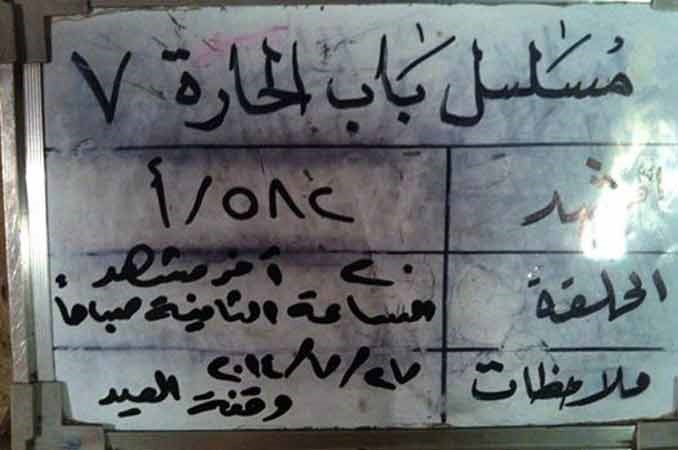 مُسَلسل بَاب الحارة ٧
المشهد ٥٨٢/أ
الحلقة ٢٠ آخر مشهد
الساعة الثامنة صباحاً
ملاحظات ٢٠١٤/٧/٢٧
وقفة العيد